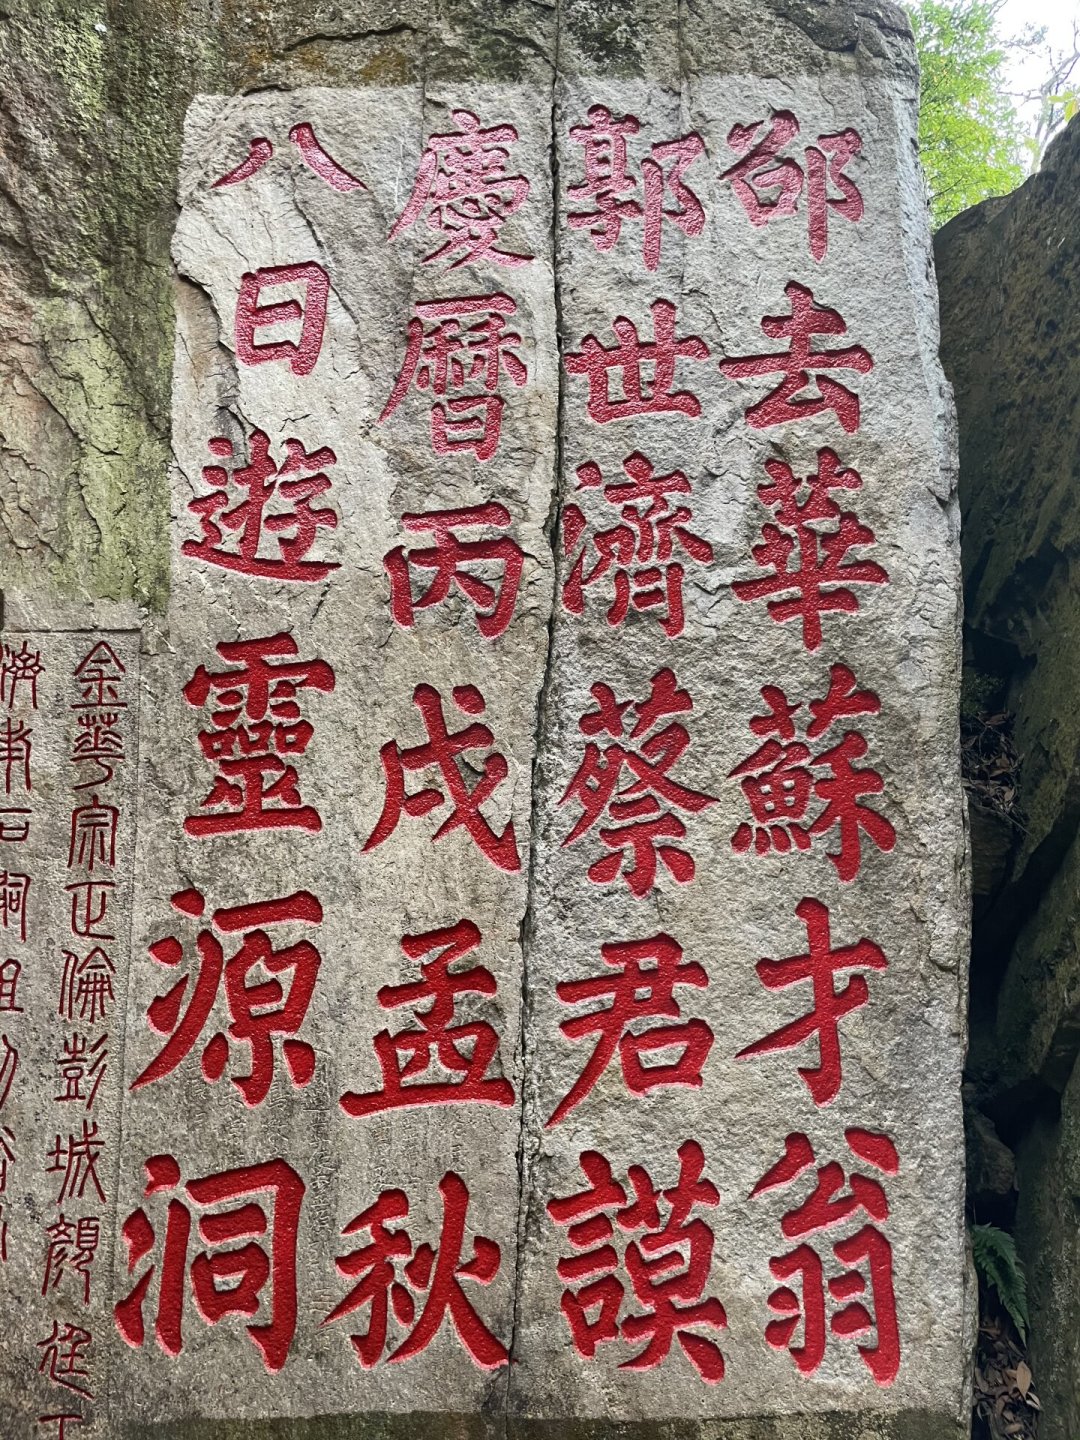 邵去華蘇才翁
郭世濟蔡君謨
慶曆丙戌孟秋
八日遊靈源洞
金華宗正倫彭城顏